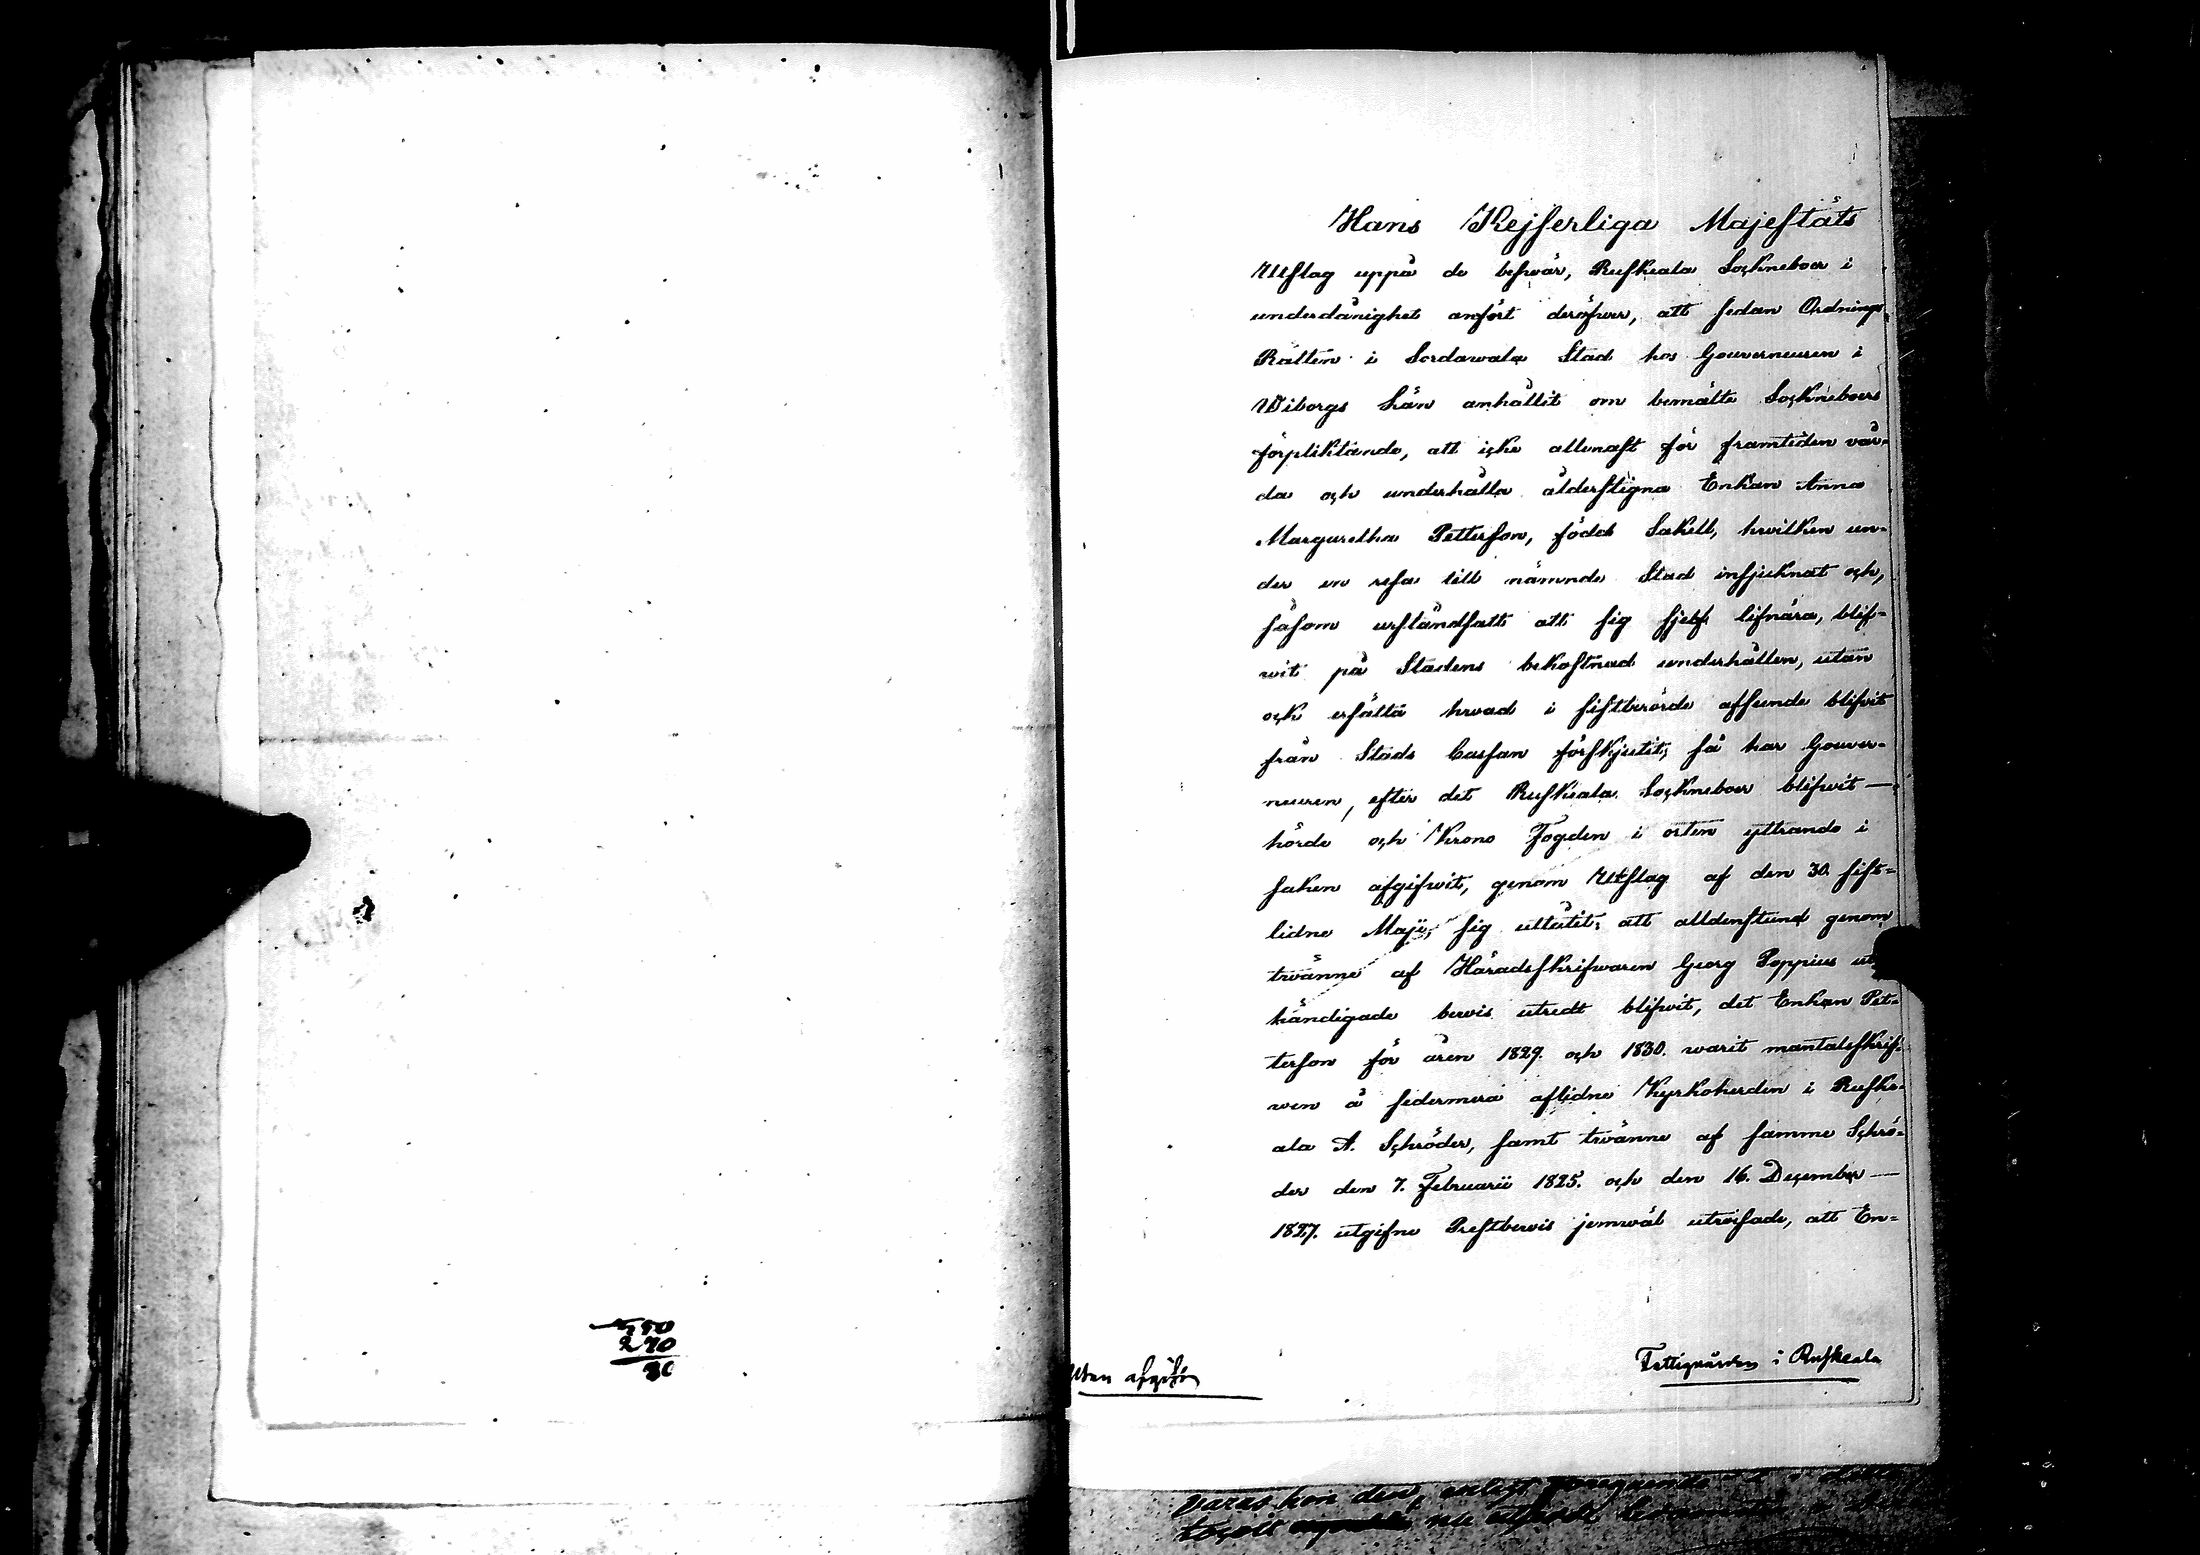 250
270
80
Hans Kejserliga Majestäts
Utslag uppå de beswär, Ruskeala Sockneboer i
underdånighet anfört deröfwer, att sedan Ordnings
Rätten i Sordawala Stad hos Gouverneuren i
Wiborgs Län anhållit om bemälte Sockneboers
förpliktande, att icke allenast för framtiden vår-
da och underhålla ålderstigna Enkan Anna
Margaretha Petterson, född Sakell, hwilken un-
der en resa till nämnde Stad insjuknat och,
såsom urståndsatt att sig sjelf lifnära, blif-
wit på Stadens bekostnad underhållen, utan
ock ersätta hwad i sistberörde afseende blifwit
från Stads Cassan förskjutit; så har Gouver-
neuren, efter det Ruskeala Sockneboer blifwit —
hörde och Krono Fogden i orten yttrande i
saken afgifwit, genom Utslag af den 30. sist-
lidne Maji, sig utlåtit: att alldenstund genom
twänne af Häradsskrifwaren Georg Poppius ut
händigade bewis utredt blifwit, det Enkan Pet-
terson för åren 1829. och 1830. warit mantalsskrif-
wen å sedermera aflidne Kyrkoherden i Ruske-
ala A. Schröder, samt twänne af samme Schrö-
der den 7. Februarii 1825. och den 16. December —
1827. utgifne Prestbewis jemwäl utwisade, att En-
afgifne
Fattigvården i Ruskeala
varas kon den, enligt föregående
nu